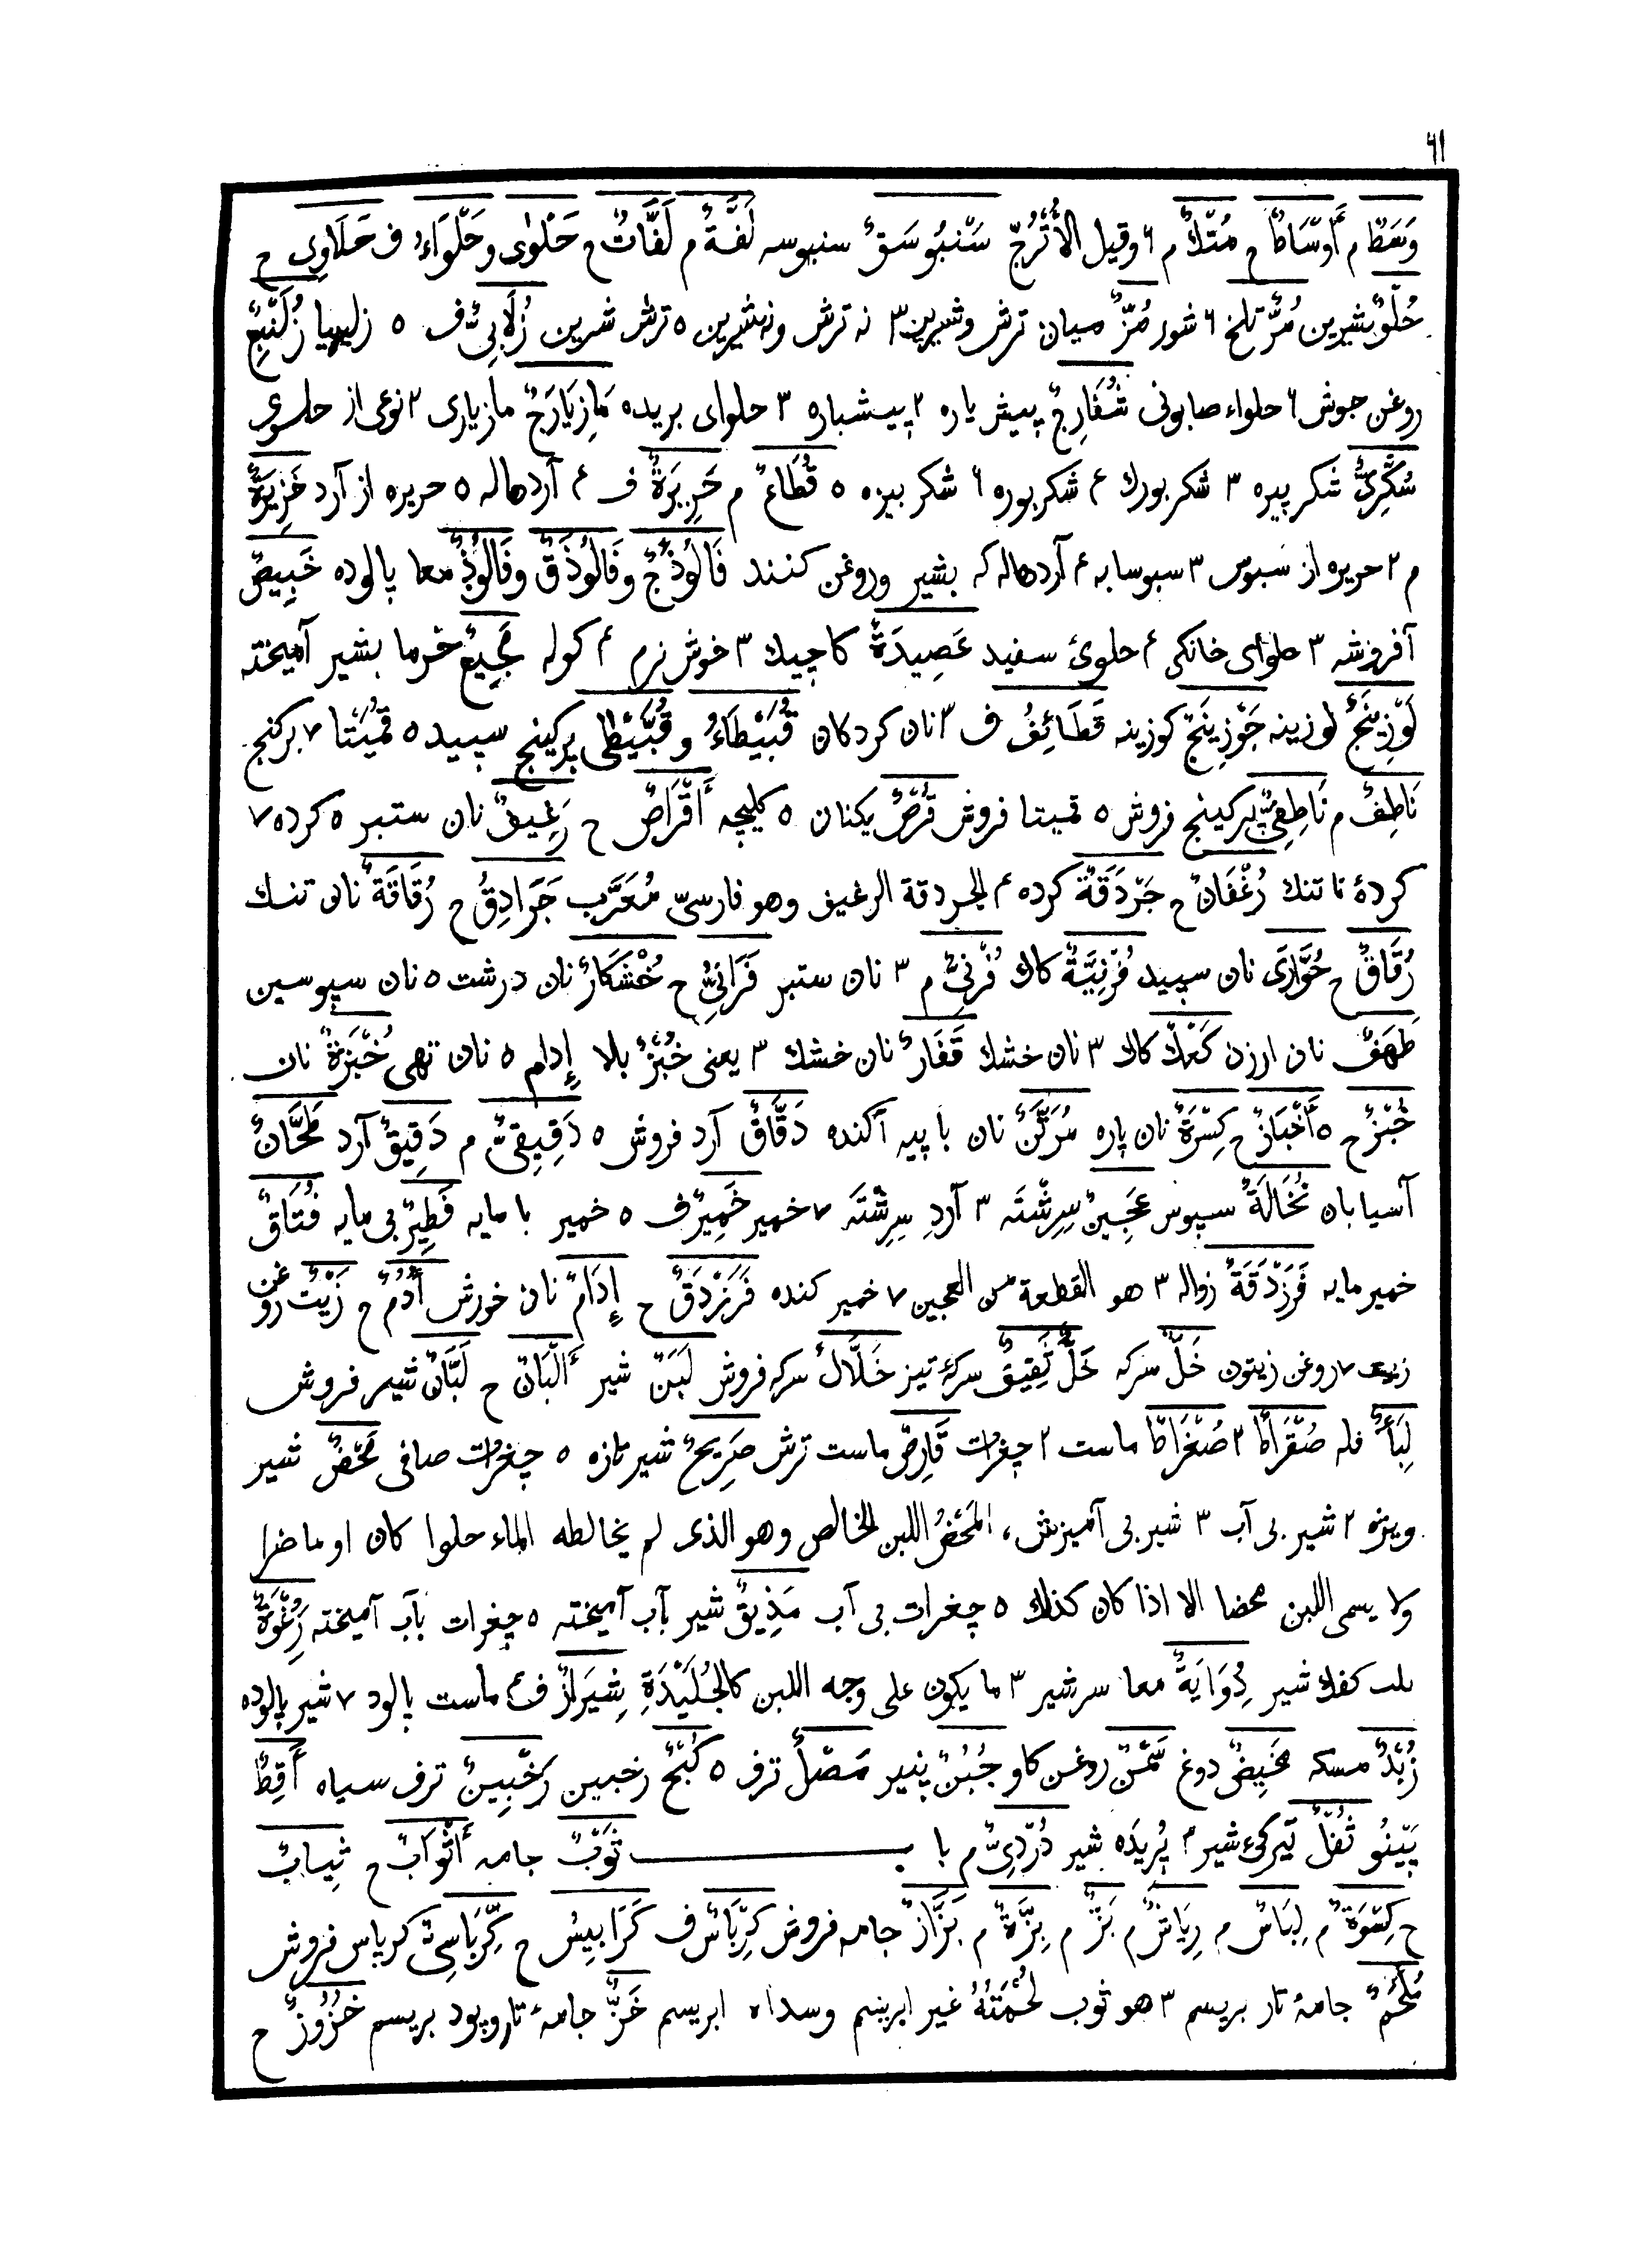 ٦١
وَسَطٌ م أَوْسَاطٌ ح مُتْكٌ م ٦ وقيل الأُتْرُجّ سَنْبُوسَقٌ سنبوسه لَفَّةٌ م لَفَّاتٌ ح حَلْوٰى وحَلْوَاءُ ف حَلَاوِى ح
حُلْوٌ شیرین مُرٌّ تلخ ٦ شور مُزٌّ میان ترش وشیرین ٣ نه ترش ونه شیرین ٥ ترش شرین زُلَابِيَّ ف ٥ زلیبیا زُلَنْبِعٌ
روغن جوش ٦ حلواء صابونی شُفَارِجٌ پیش یاره ٢ پیشباره ٣ حلوای بریده مَازِيَارَجٌ مازیاری ٢ نوعی از حلوی
سُكَّرِىٌّ شکر پیره ٣ شکر بورك ٤ شکر بوره ٦ شکر بیزه ٥ قُطَاعٌ م حَرِيرَةٌ ف ٤ آردهاله ٥ حریره از آرد خَزِيرَةٌ
م ٢ حریره از سبوس ٣ سبوسابه ٤ آردهاله که بشیر وروغن کنند فَالُوذَجٌ وفَالُوذَقٌ وفَالُوذٌ معا پالوده خَبِيصٌ
آفروشه ٣ حلوای خانکی ٤ حلوئ سفید عَصِيدَةٌ کاچیك ٣ خوش نرم ٤ کوله مَجِيعٌ خرما بشیر آمیخته
لَوْزِينَجٌ لوزینه جَوْزِينَجٌ کوزینه قَطَائِفُ ف ٣ نان کردکان قُبَيْطَاءُ وقُبَّيْطٰى پرکینج سپید ٥ قُمَيْتَا ٧ برکنج
نَاطِفٌ م نَاطِفِىٌّ پرکینج فروش ٥ قمیتا فروش قُرْصٌ یکنان ٥ کلیچه أَقْرَاصٌ ح رَغِيفٌ نان ستبر ٥ کرده ٧
کردهٔ نا تنك رُغْفَانٌ ح جَرْدَقَةٌ کرده ٤ الجردقة الرغیف وهو فارسیّ مُعَرَّب جَرَادِقُ ح رُقَاقَةٌ نان تنك
رُقَاقٌ ح حُوَّارَى نان سپید فُرْنِيَّةٌ کاك فُرْنِىٌّ م ٣ نان ستبر فَرَانِىُّ ح خُشْكَارٌ نان درشت ٥ نان سپوسین
طَهَفٌ نان ارزن كَعْكٌ کاك ٣ نان خشك قَفَارٌ نان خشك ٣ یعنی خُبْزٌ بلا إدام ٥ نان تهی خُبْزَةٌ نان
خُبْزٌ ح ٥ أَخْبَازٌ ح كِسْرَةٌ نان پاره مُرَتَّنٌ نان با پیه آکنده دَقَّاقٌ آرد فروش ٥ دَقِيقِىٌّ م دَقِيقٌ آرد طَحَّانٌ
آسیابان نُخَالَةٌ سپوس عَجِينٌ سِرِشْتَه ٣ آردِ سِرِشْتَه ٧ خهیر خَمِيرٌ ف ٥ خمیر با مایه فَطِيرٌ بی مایه فُتَاقٌ
خمیر مایه فَرَزْدَقَةٌ زواله ٣ هو القطعة من العجین ٧ خمیر کنده فَرَزْدَقٌ ح إِدَامٌ نان خورش أُدُمٌ ح زَيْتٌ روغن
زیت ٧ روغن زیتون خَلٌّ سرکه خَلٌّ ثَقِيفٌ سرکهٔ تیز خَلَّالٌ سرکه فروش لَبَنٌ شیر أَلْبَانٌ ح لَبَّانٌ شیر فروش
لِبَأٌ فله صُقْرَاطٌ ٣ صُغْرَاطٌ ماست ٢ چغرات قَارِصٌ ماست ترش صَرِيحٌ شیر تازه ٥ چغرات صافی مَحْضٌ شیر
ویژه ٢ شیر بی آب ٣ شیر بی آمیزش، المَحْضُ اللبن الخالص وهو الذی لم یخالطه الماء حلوا کان او ماضرا
ولا یسمی اللبن محضا الا اذا کان کذلك ٥ چغرات بی آب مَذِيقٌ شیر بآب آمیخته ٥ چغرات بآب آمیخته رَغْوَةٌ
کفك شیر دُوَايَةٌ معا سرشیر ٣ ما یکون علی وجه اللبن کالجُلَيْدَةِ شِيرَازٌ ف ٤ ماست پالود ٧ شیر پالوده
زُبْدٌ مسکه مَخِيضٌ دوغ سَمْنٌ روغن کاو جُبُنٌ پنیر مَصْلٌ ترف ٥ كُبْحٌ رخبین رَخْبِينٌ ترف سیاه أَقِطٌ
پَيْنُو ثُفْلٌ تیرکیٔ شیر ٢ پُریدَه شیر دُرْدِىٌّ م با ب ثَوْبٌ جامه أَثْوَابٌ ح ثِيابٌ
ح كِسْوَةٌ م لِبَاسٌ م رِيَاشٌ م بَزٌّ م بِزَّةٌ م بَزَّازٌ جامه فروش كِرْبَاسٌ ف كَرَابِيسُ ح كِرْبَاسِىٌّ کرباس فروش
مُلْحَمٌ جامهٔ تار بریسم ٣ هو ثوب لُحْمَتُهُ غیر ابریسم وسداه ابریسم خَزٌّ جامهٔ تاروپود بریسم خُزُوزٌ ح